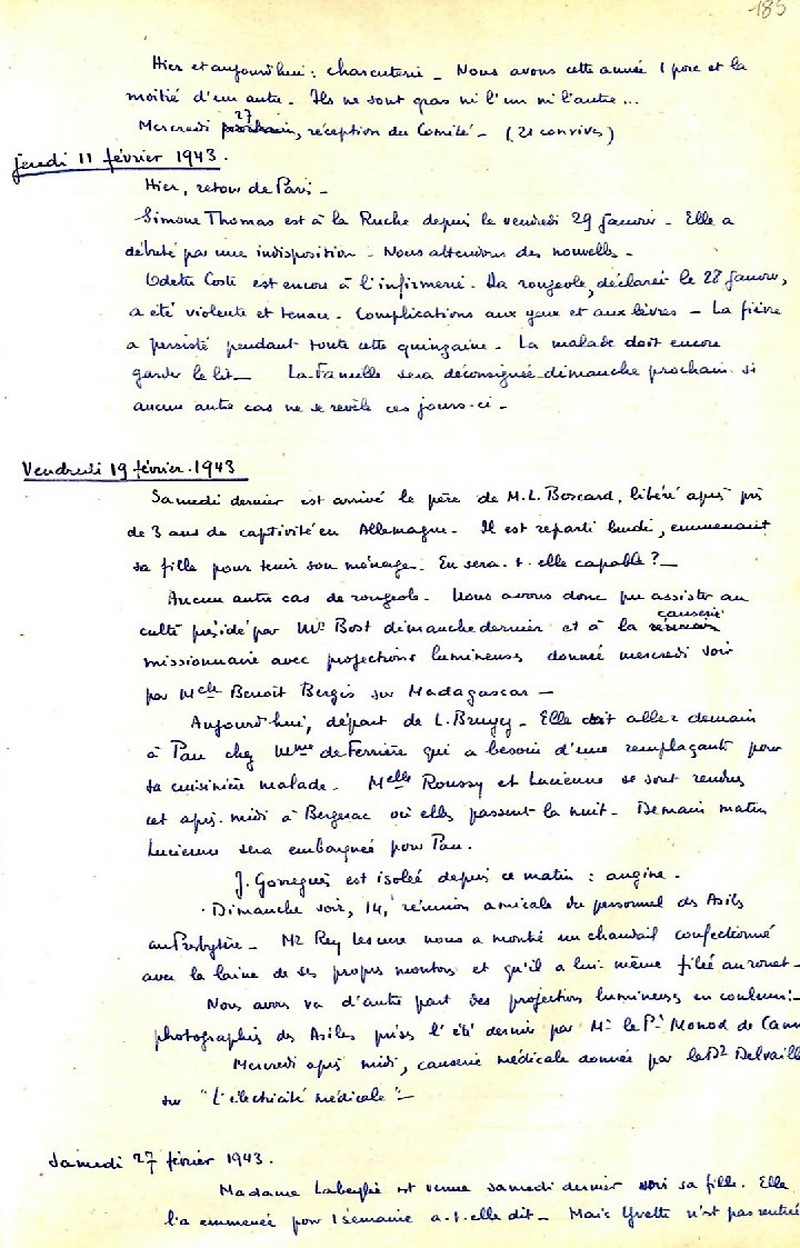 185
Hier et aujourd'hui : charcuterie _ Nous avons cette année 1 porc et la
moitié d'un autre. Ils ne sont gras ni l'un ni l'autre...
27
Mercredi prochain, réception du Comité _ (21 convives)
jeudi 11 février 1943.
Hier, retour de Paris _
Simone Thomas est à la Ruche depuis le vendredi 29 janvier _ Elle a
débuté par une indisposition _ Nous attendons des nouvelles _
Odette Coste est encore à l'infirmerie. Sa rougeole, déclarée le 28 janvier,
a été violente et tenace. Complications aux yeux et aux lèvres _ La fièvre
a persisté pendant toute cette quinzaine. La malade doit encore
garder le lit _ La Famille sera déconsignée dimanche prochain si
aucun autre cas ne se revèle ces jours-ci _
Vendredi 19 février 1943
Samedi dernier est arrivé le père de M.L. Boscard, libéré après près
de 3 ans de captivité en Allemagne. Il est reparti lundi, emmenant
sa fille pour tenir son ménage. En sera-t-elle capable ? _
Aucun autre cas de rougeole. Nous avons donc pu assister au
causerie
culte présidé par Mr Bost dimanche dernier et à la réunion
missionnaire avec projections lumineuses donnée mercredi soir
par Melle Benoît Bergis sur Madagascar _
Aujourd'hui, départ de L. Brugy _ Elle doit aller demain
à Pau chez Mme de Ferrière qui a besoin d'une remplaçante pour
sa cuisinière malade. Melle Roussy et Lucienne se sont rendues
cet après-midi à Bergerac où elles passent la nuit. Demain matin
Lucienne sera embarquée pour Pau.
J. Gorregues est isolée depuis ce matin : angine.
Dimanche soir, 14, réunion amicale du personnel des Asiles
au Presbytère _ Mr Rey Lescure nous a montré un chandail confectionné
avec la laine de ses propres moutons et qu'il a lui-même filée au rouet _
Nous avons vu d'autre part des projections lumineuses en couleurs :
photographies des Asiles prises l'été dernier par Mr le Pr Monod de Cann
Mercredi après midi, causerie médicale donnée par le Dr Delvaill
sur "L'électricité médicale" _
Samedi 27 février 1943.
Madame Labeylie est venue samedi dernier voir sa fille. Elle
l'a emmenée pour 1 semaine a-t-elle dit _ Mais Yvette n'est pas rentrée